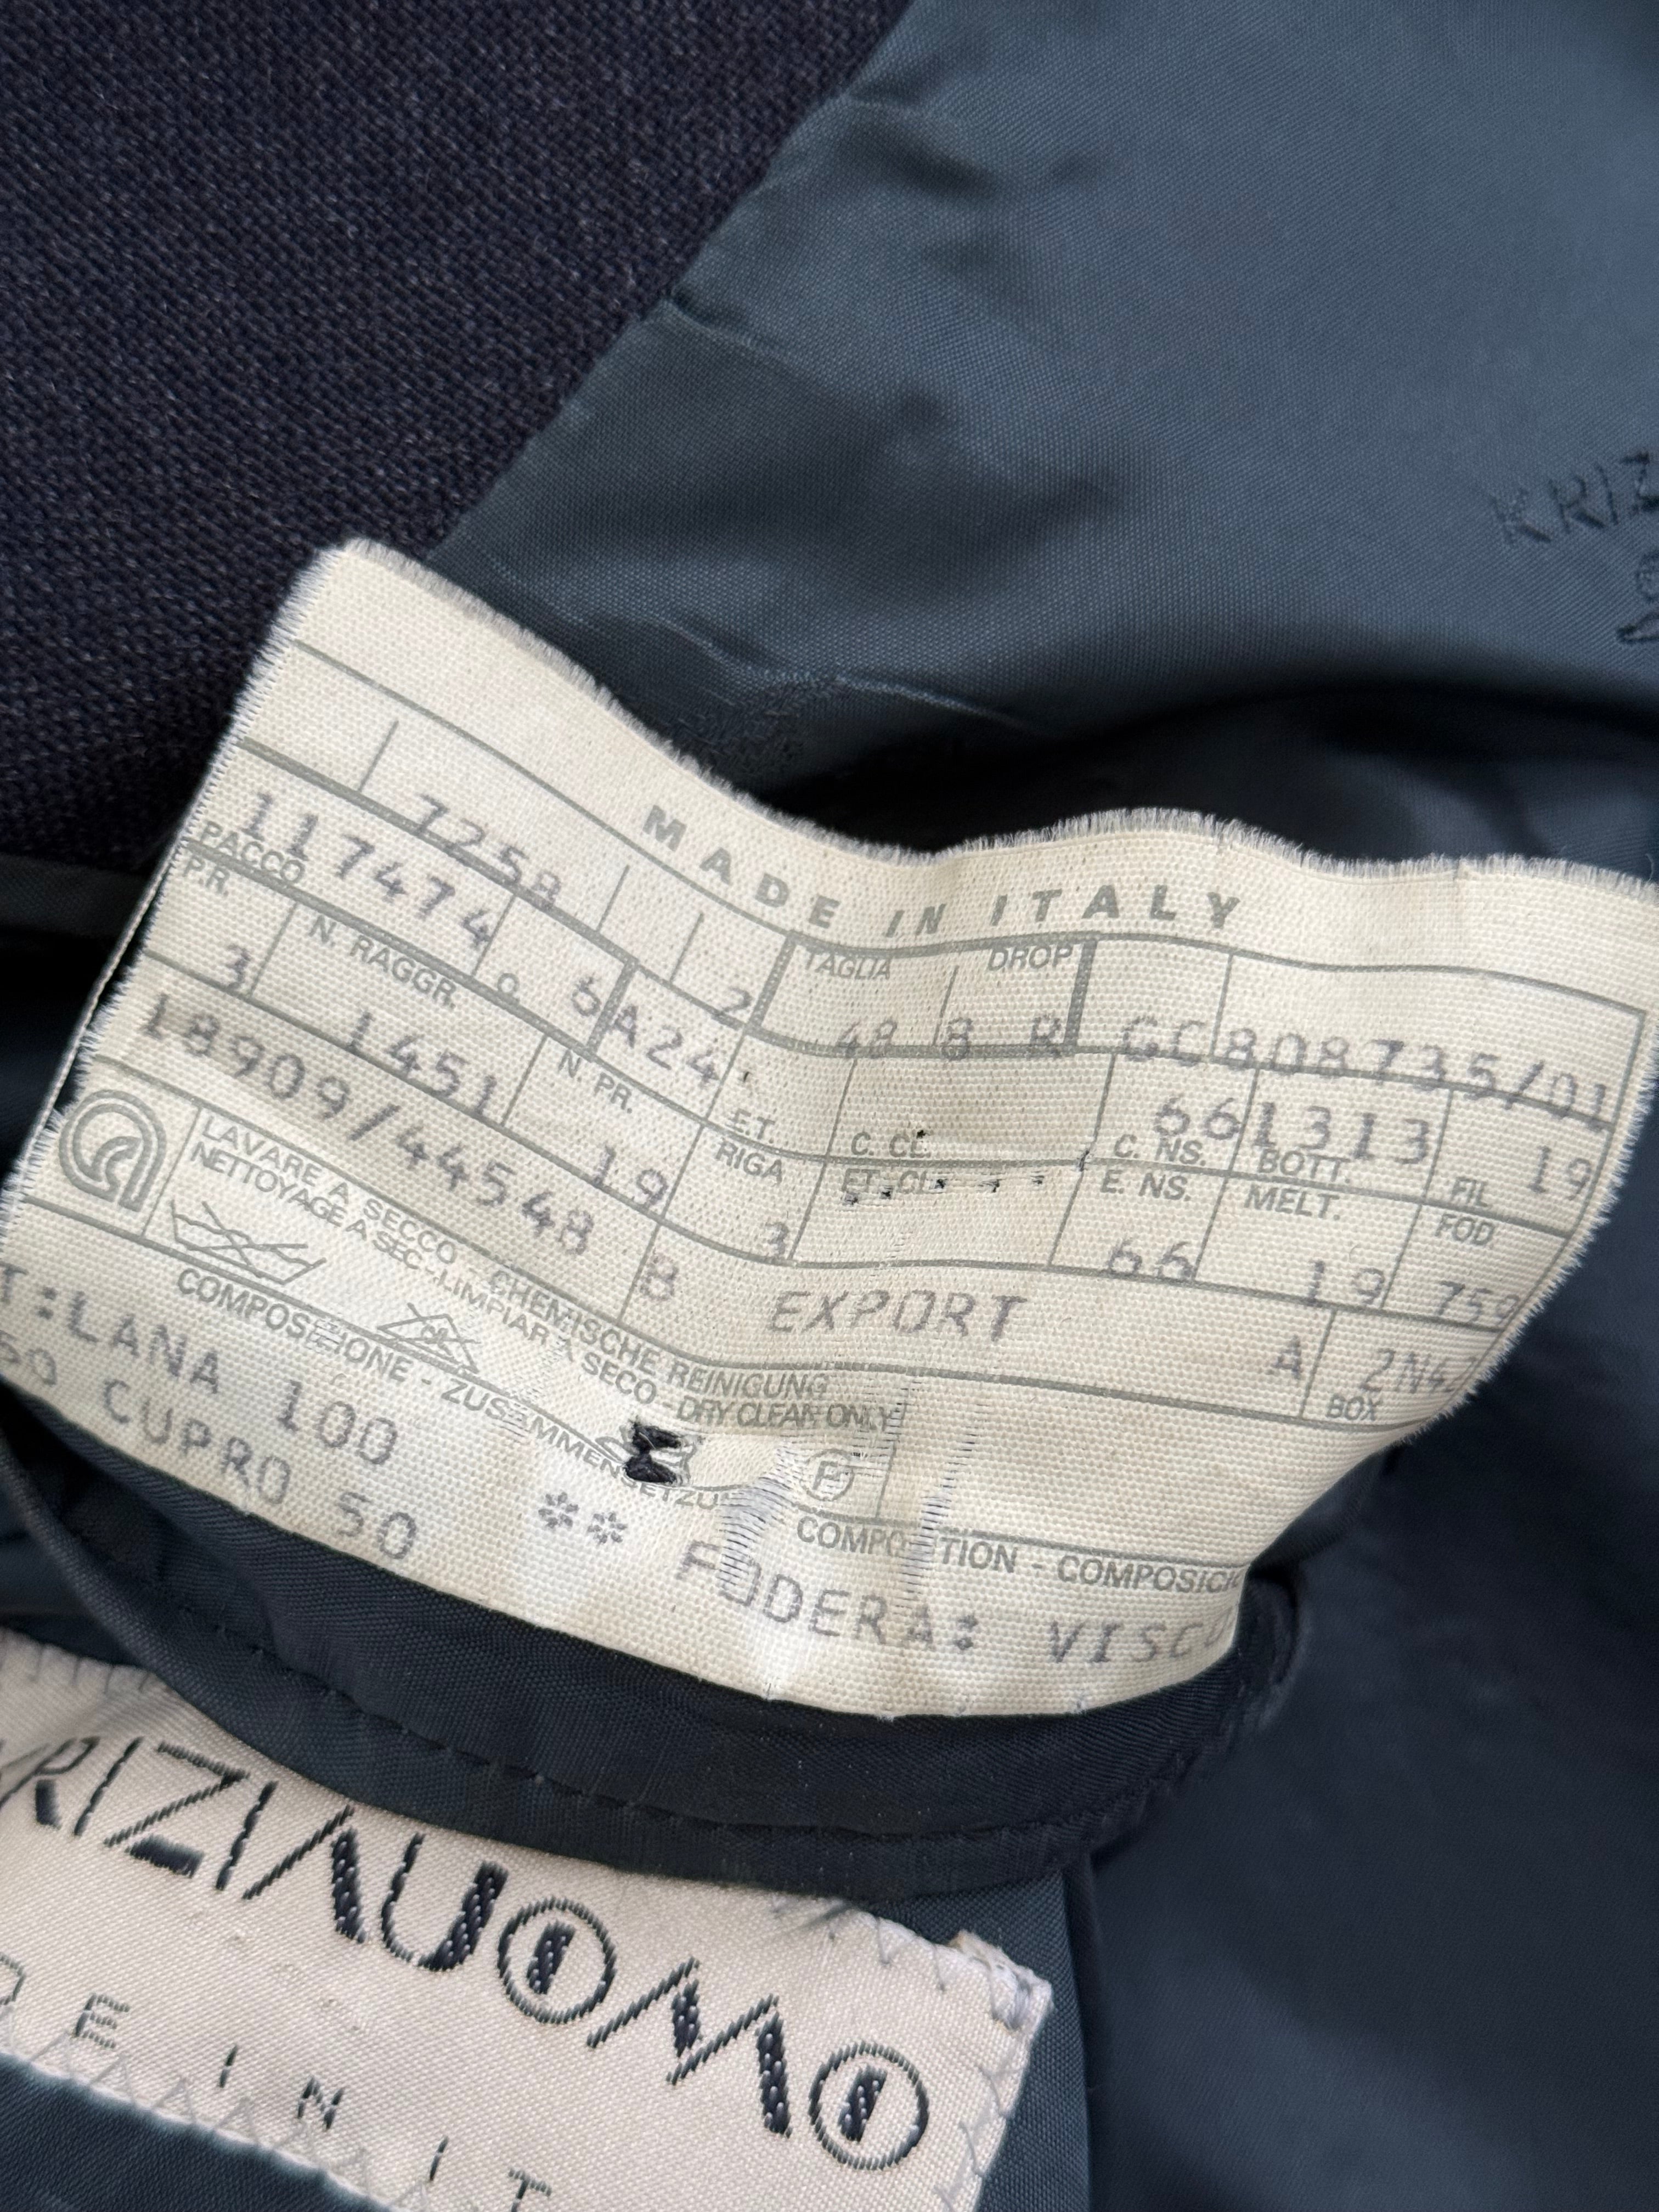 KRIZ
MADE IN ITALY
7258 2 TAGLIA DROP
117474 6 A24 48 8 R GC808735/01
PACCO
P.R. N. RAGGR. N. PR. E.T. C. CL. C. NS. 661313 BOTT. FIL 19
3 1451 19 RIGA 3 ET. CL. E. NS. 66 MELT. 19 FOD 759
18909/44548 B EXPORT A BOX
LAVARE A SECCO - CHEMISCHE REINIGUNG
NETTOYAGE A SEC - LIMPIAR A SECO - DRY CLEAN ONLY
P
COMPOSIZIONE - COMPOSICI
T:LANA 100 ** FODERA: VISCO
50 CUPRO 50
KRIZIAUOMO
DE IN IT